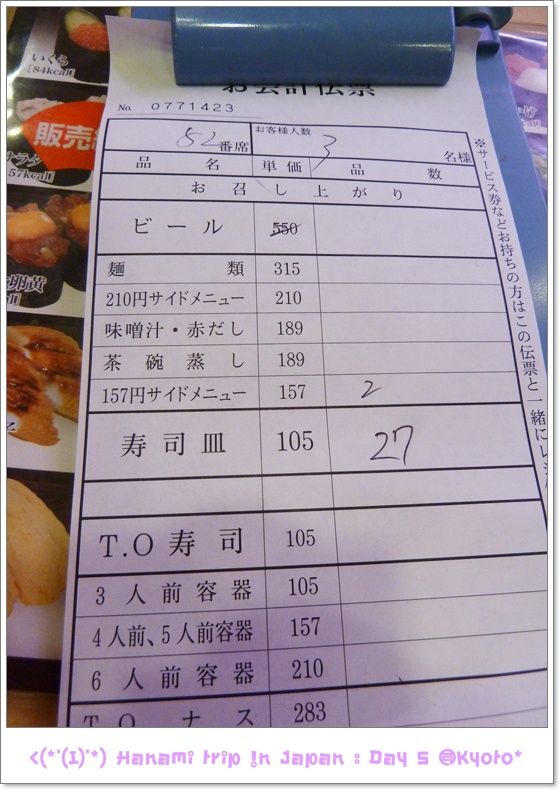 いくら
[84kcal]
販売
サラダ
57kcal]
卵黄
お会計伝票
No. 0771423
52番席 お客様人数 3 名様
品名 単価 品数
お召し上がり
ビール 550
麺類 315
210円サイドメニュー 210
味噌汁・赤だし 189
茶碗蒸し 189
157円サイドメニュー 157 2
寿司皿 105 27
T.O寿司 105
3人前容器 105
4人前、5人前容器 157
6人前容器 210
T.O ナス 283
※サービス券などお持ちの方はこの伝票と一緒にレジ
<(*'(I)'*) Hanami trip !n Japan : Day 5 @Kyoto*